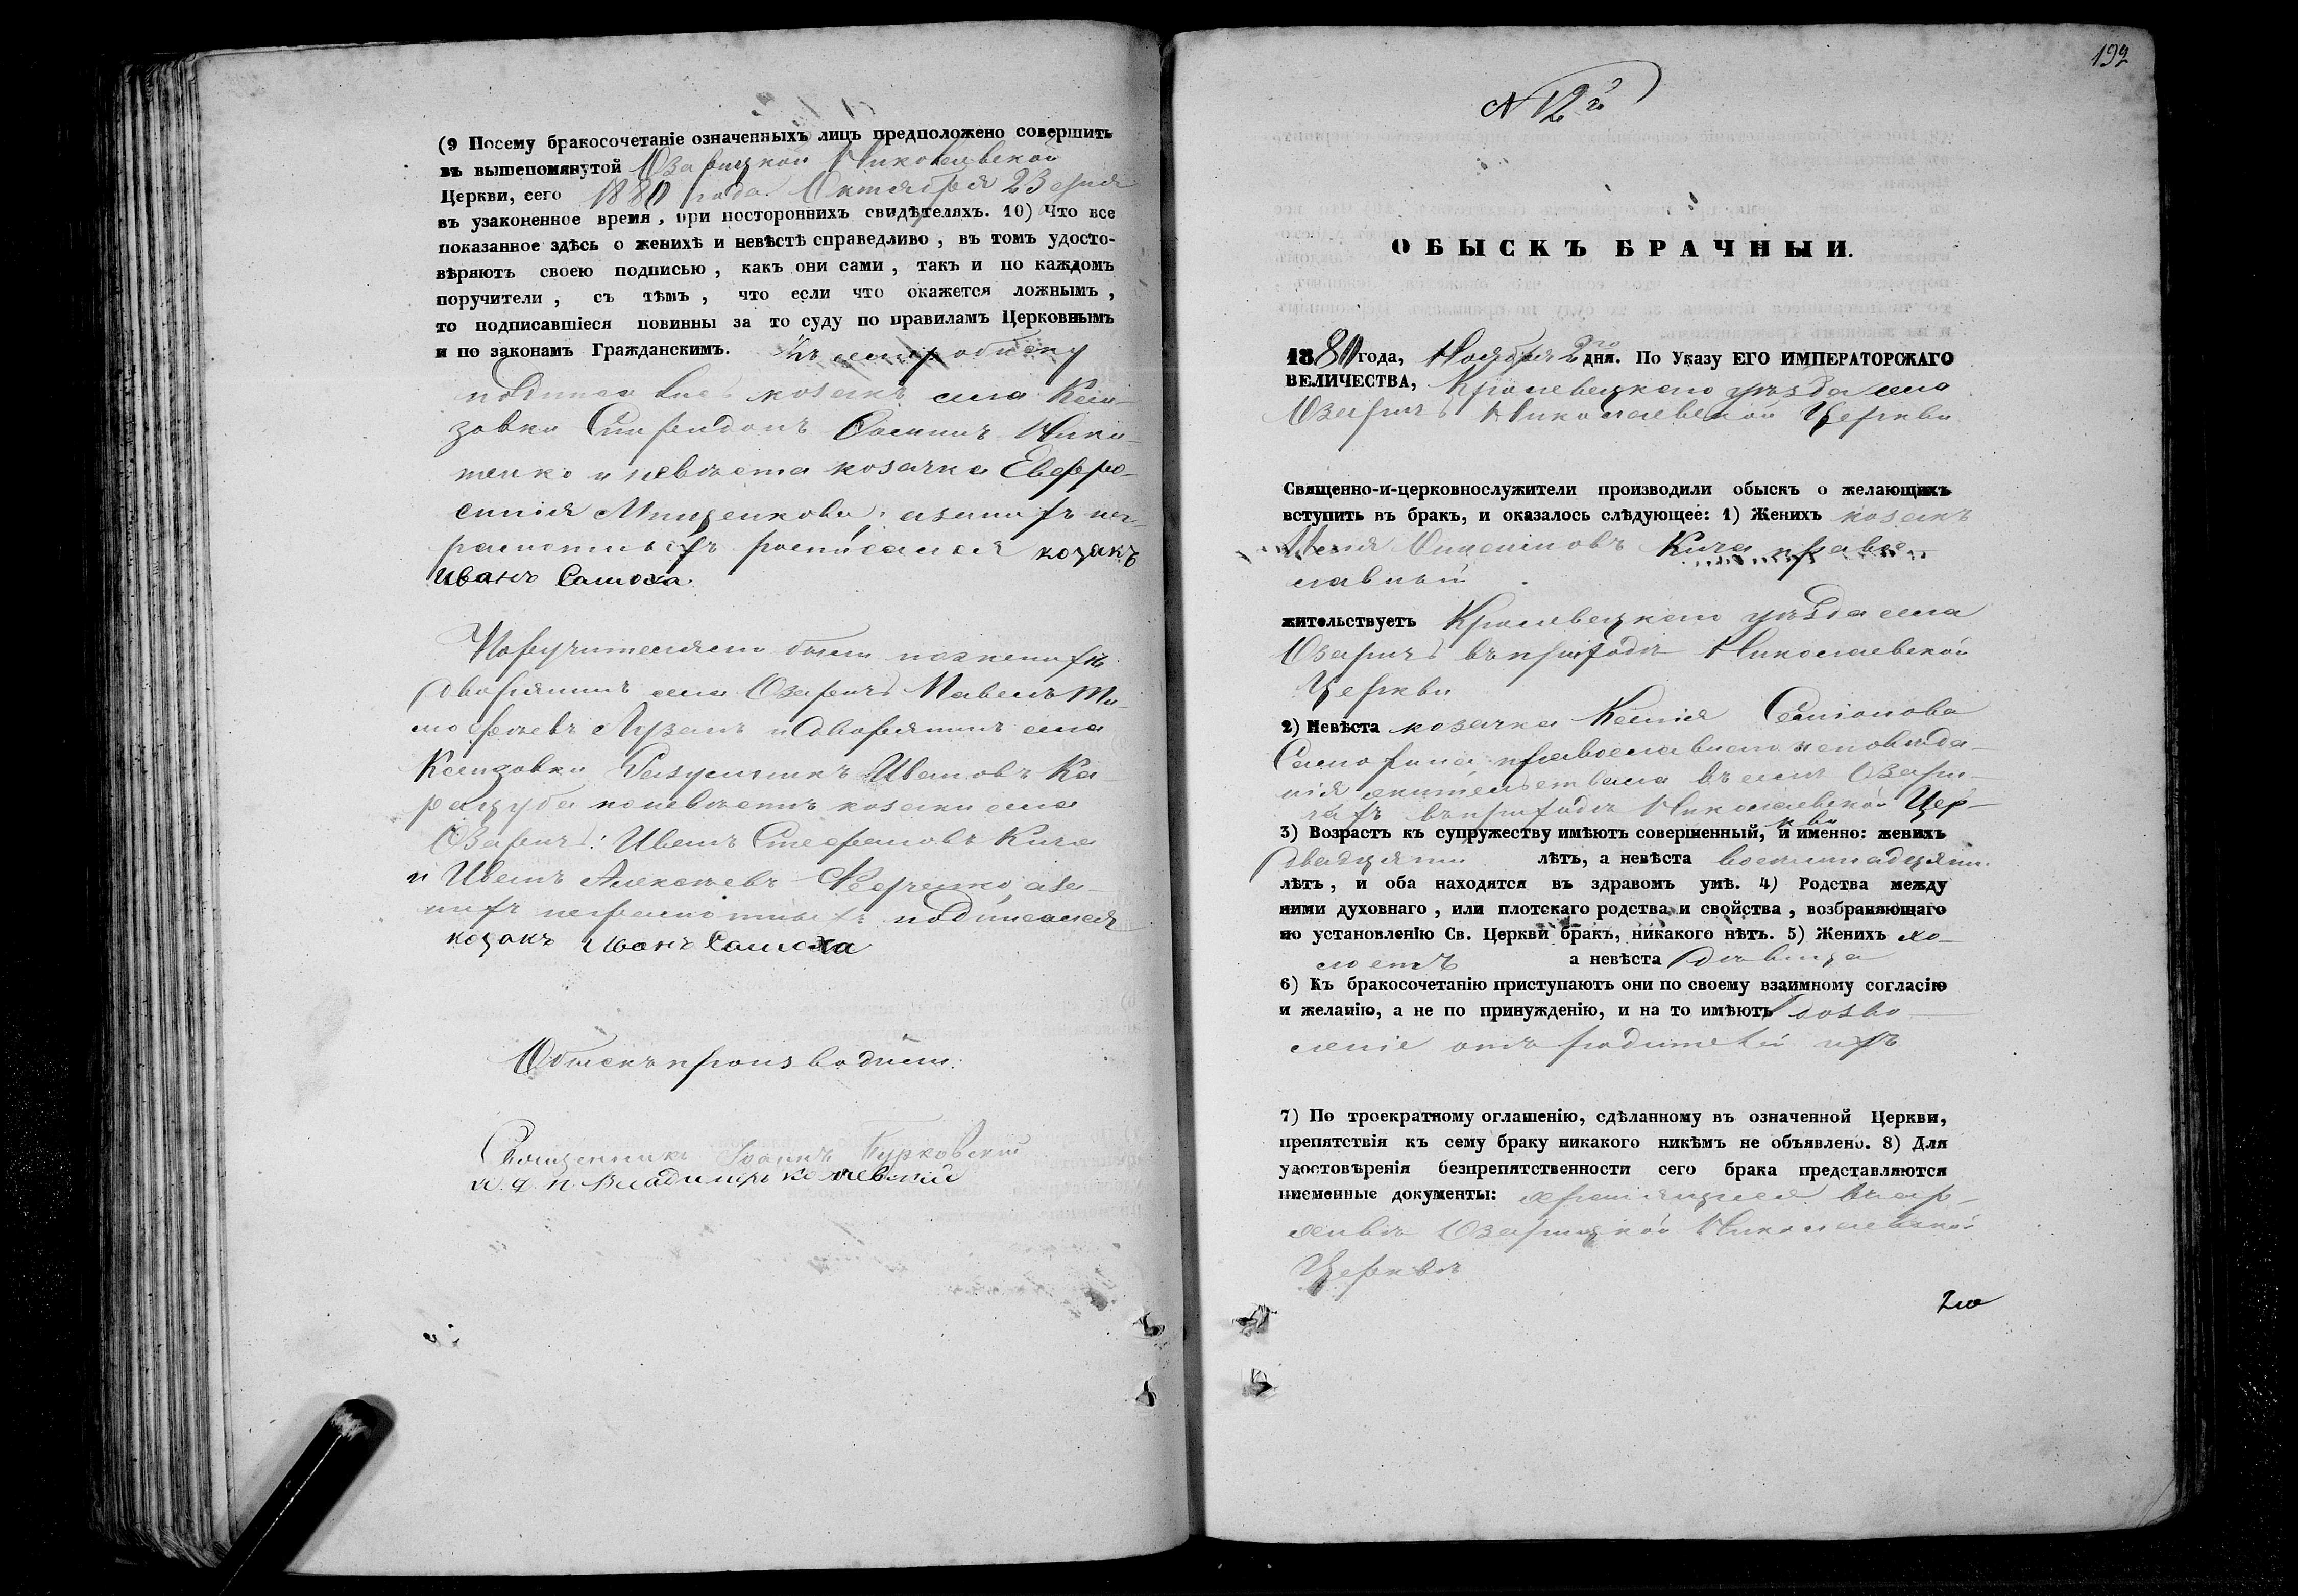 (9 Посему бракосочетаніе означенныхъ лицъ предположено совершить
въ вышепомянутой Озарицкой Николаевской
Церкви, сего 1880 года Октября 23 дня
въ узаконенное время, при постороннихъ свидѣтеляхъ. 10) Что все
показанное здѣсь о женихѣ и невѣстѣ справедливо, въ томъ удосто-
вѣряютъ своею подписью, какъ они сами, такъ и по каждомъ
поручители, съ тѣмъ, что если что окажется ложнымъ,
то подписавшіеся повинны за то суду по правиламъ Церковнымъ
и по законамъ Гражданскимъ. Къ сему обыску
козакъ села
зовки Спиридонъ Ники-
тенко и невѣста козачка Евфро-
синія Мищенкова, а за нихъ не-
грамотныхъ росписался козакъ
Иванъ Самоха.
Поручителями были по женихѣ
дворянинъ села Озаричъ Павелъ Ти-
мофѣевъ Лузанъ и дворянинъ села
Ивановъ Ка-
рацуба по невѣстѣ козаки села
Озаричъ: Иванъ Стефановъ Кича
и Иванъ Алексѣевъ а за
нихъ неграмотныхъ подписался
козакъ Иванъ Самоха
Обыскъ производили:
Священникъ Іоаннъ Бурковскій
и. д. п. Владимиръ
192
N 12й
ОБЫСКЪ БРАЧНЫЙ.
1880 года, Ноября 2го дня. По Указу ЕГО ИМПЕРАТОРСКАГО
ВЕЛИЧЕСТВА, Кролевецкаго уѣзда села
Озаричъ Николаевской Церкви
Священно-и-церковнослужители производили обыскъ о желающихъ
вступить въ бракъ, и оказалось слѣдующее: 1) Женихъ козакъ
Кича право-
славный
жительствуетъ Кролевецкаго уѣзда села
Озаричъ въ приходѣ Николаевской
Церкви
2) Невѣста козачка Ксенія
православнаго исповѣда-
нія жительствала въ селѣ Озари-
чахъ въ приходѣ Николаевской Цер-
кви
3) Возрастъ къ супружеству имѣютъ совершенный, и именно: женихъ
двадцяти лѣтъ, а невѣста восемнадцяти
лѣтъ, и оба находятся въ здравомъ умѣ. 4) Родства между
ними духовнаго, или плотскаго родства и свойства, возбраняющаго
по установленію Св. Церкви бракъ, никакого нѣтъ. 5) Женихъ хо-
лостъ а невѣста дѣвица
6) Къ бракосочетанію приступаютъ они по своему взаимному согласію
и желанію, а не по принужденію, и на то имѣютъ дозво-
леніе отъ родителей ихъ
7) По троекратному оглашенію, сдѣланному въ означенной Церкви,
препятствія къ сему браку никакого никѣмъ не объявлено. 8) Для
удостовѣренія безпрепятственности сего брака представляются
писменные документы: хранящиеся въ ар-
хивѣ Озарицкой Николаевской
Церкви